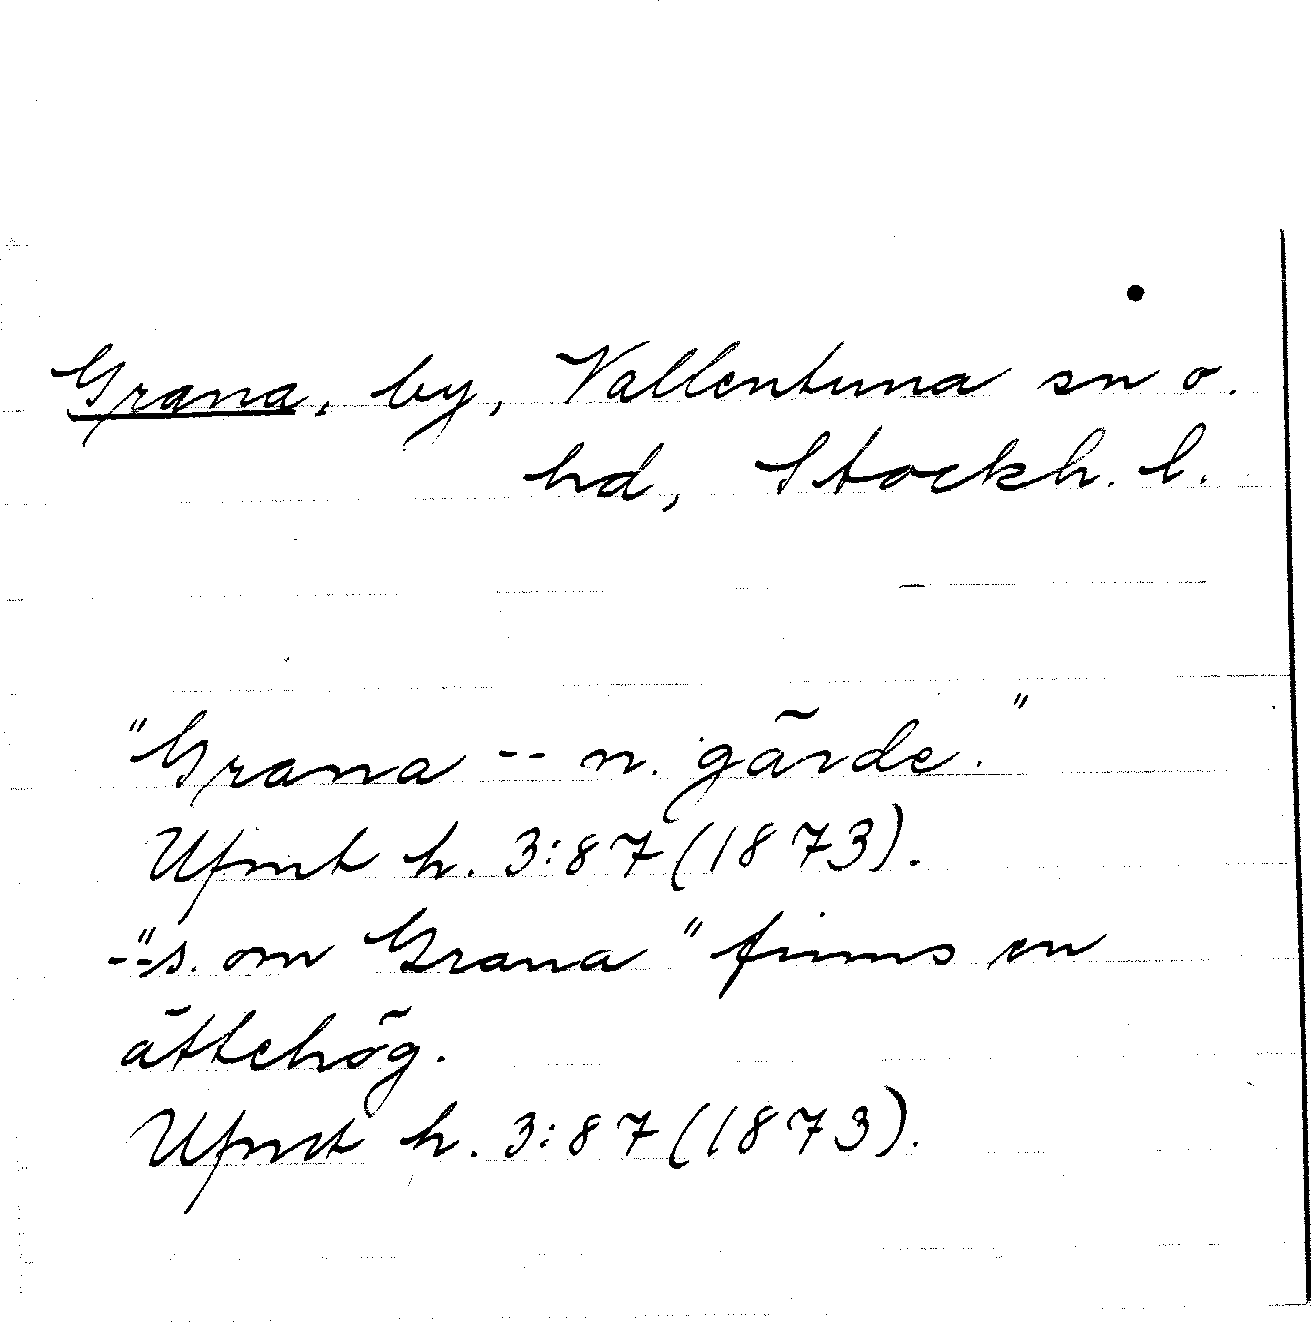 Grana, by, Vallentuna sn o.
hd, Stockh. l.
"Grana -- n. gärde."
Ufmt h. 3:87 (1873).
--"s. om Grana" finns en
ättehög.
Ufmt h. 3:87 (1873).